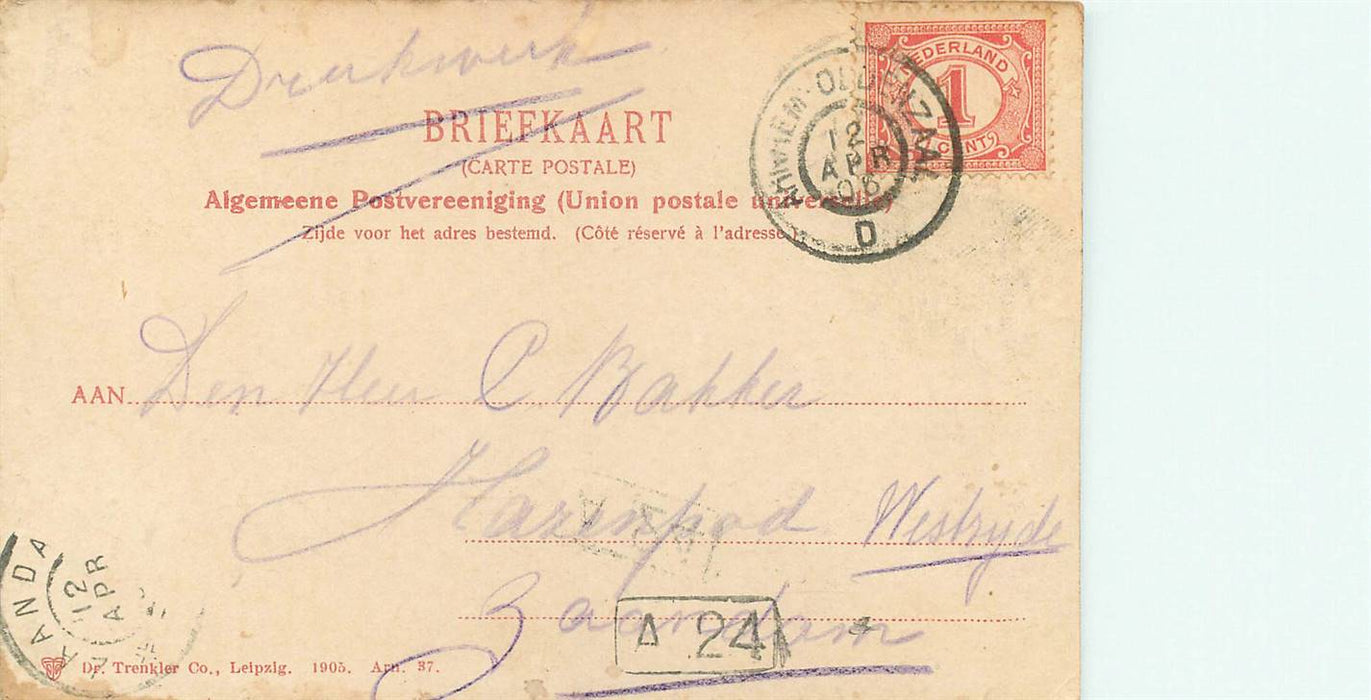 Drukwerk
BRIEFKAART
(CARTE POSTALE)
Algemeene Postvereeniging (Union postale universelle)
Zijde voor het adres bestemd. (Côté réservé à l'adresse.)
NEDERLAND
1
CENT
ARNHEM-OLDENZAAL
12
APR
06
D
AAN Den Heer C Bakker
Hazenpad Westzyde
Zaandam
A 24
12
APR
Dr. Trenkler Co., Leipzig. 1905. Arn. 37.